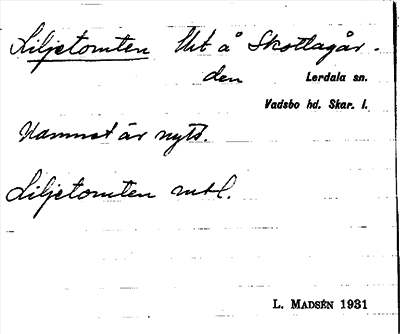 Liljetomten Uet å Skottagår-
den Lerdala sn.
Vadsbo hd. Skar. l.
Namnet är nytt.
Liljetomten mtl.
L. MADSÉN 1931